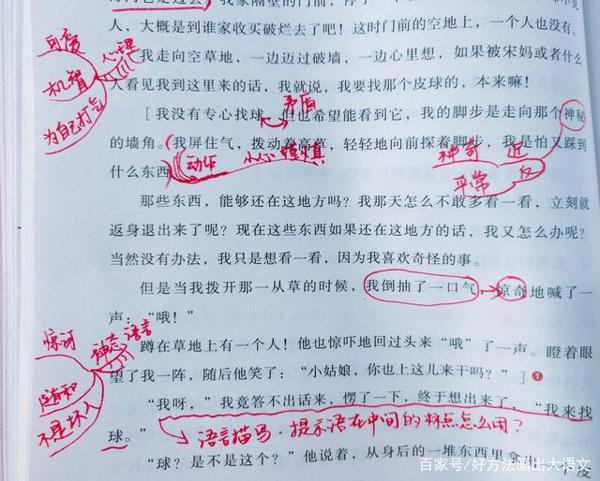 人，大概是到谁家收买破烂去了吧！这时门前的空地上，一个人也没有。
我走向空草地，一边迈过破墙，一边心里想，如果被宋妈或者什么
人看见我到这里来的话，我就说，我要找那个皮球的，本来嘛！
[我没有专心找球，但也希望能看到它，我的脚步是走向那个神秘
的墙角。(我屏住气，拨动着高草，轻轻地向前探着脚步，我是怕又踩到
什么东西
那些东西，能够还在这地方吗？我那天怎么不敢多看一看，立刻就
返身退出来了呢？现在这些东西如果还在这地方的话，我又怎么办呢？
当然没有办法，我只是想看一看，因为我喜欢奇怪的事。
但是当我拨开那一丛草的时候，我倒抽了一口气，惊奇地喊了一
声：“哦！”
蹲在草地上有一个人！他也惊吓地回过头来“哦”了一声。瞪着眼
望了我一阵，随后他笑了：“小姑娘，你也上这儿来干吗？”]1
“我呀，”我竟答不出话来，愣了一下，终于想出来了，“我来找
球。”
“球？是不是这个？”他说着，从身后的一堆东西里拿出
机智
为自己打气
心理
矛盾
动作
小心谨慎
神奇
平常
近
反
惊讶
神态
语言
随和
不是坏人
语言描写，提示语在中间的标点怎么用？
百家号/好方法画出大语文